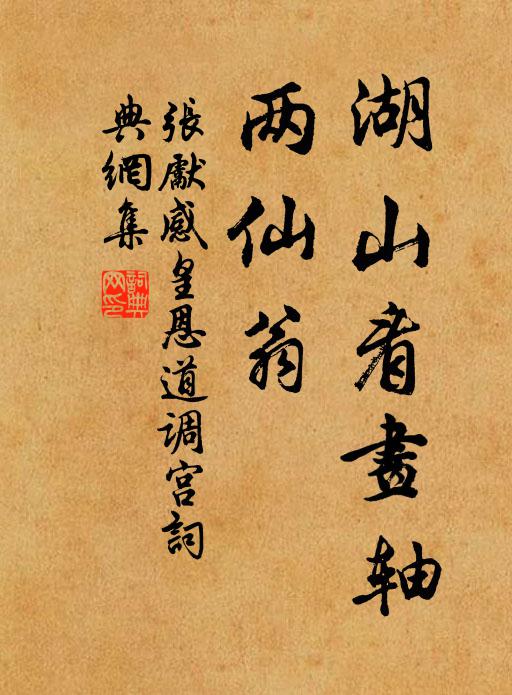 湖山看畫軸
两仙翁
張獻感皇恩道调宫詞
典網集
詞典
网印